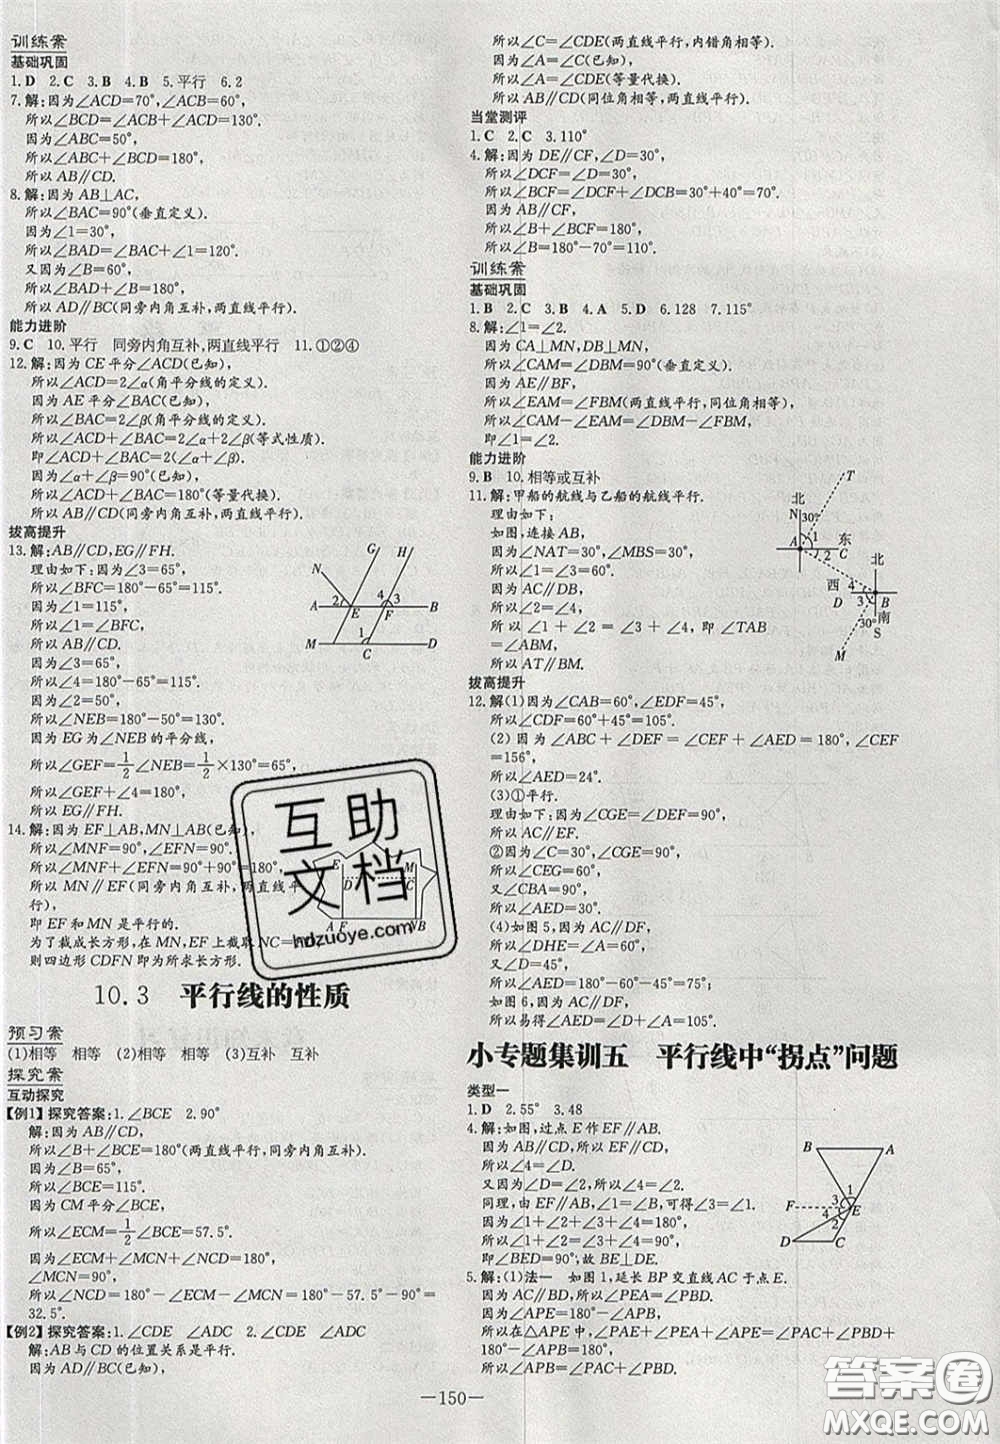 训练案
基础巩固
1.D 2.C 3.B 4.B 5.平行 6.2
7.解:因为∠ACD=70°,∠ACB=60°,
所以∠BCD=∠ACB+∠ACD=130°.
因为∠ABC=50°,
所以∠ABC+∠BCD=180°,
所以AB∥CD.
8.解:因为AB⊥AC,
所以∠BAC=90°(垂直定义).
因为∠1=30°,
所以∠BAD=∠BAC+∠1=120°,
又因为∠B=60°,
所以∠BAD+∠B=180°.
所以AD∥BC(同旁内角互补,两直线平行).
能力进阶
9.C 10.平行 同旁内角互补,两直线平行 11.①②④
12.解:因为CE平分∠ACD(已知),
所以∠ACD=2∠α(角平分线的定义).
因为AE平分∠BAC(已知),
所以∠BAC=2∠β(角平分线的定义).
所以∠ACD+∠BAC=2∠α+2∠β(等式性质).
即∠ACD+∠BAC=2(∠α+∠β).
因为∠α+∠β=90°(已知),
所以∠ACD+∠BAC=180°(等量代换).
所以AB∥CD(同旁内角互补,两直线平行).
拔高提升
13.解:AB∥CD,EG∥FH.
理由如下:因为∠3=65°,
所以∠BFC=180°-65°=115°.
因为∠1=115°,
所以∠1=∠BFC,
所以AB∥CD.
因为∠3=65°,
所以∠4=180°-65°=115°.
因为∠2=50°,
所以∠NEB=180°-50°=130°.
因为EG为∠NEB的平分线,
所以∠GEF=1/2∠NEB=1/2×130°=65°,
所以∠GEF+∠4=180°,
所以EG∥FH.
14.解:因为EF⊥AB,MN⊥AB(已知),
所以∠MNF=90°,∠EFN=90°.
所以∠MNF+∠EFN=90°+90°=180°,
所以MN∥EF(同旁内角互补,两直线平行),
即EF和MN是平行的.
为了截成长方形,在MN,EF上截取NC=
则四边形CDFN即为所求长方形.
10.3 平行线的性质
预习案
(1)相等 相等 (2)相等 相等 (3)互补 互补
探究案
互动探究
【例1】探究答案:1.∠BCE 2.90°
解:因为AB∥CD,
所以∠B+∠BCE=180°(两直线平行,同旁内角互补).
因为∠B=65°,
所以∠BCE=115°.
因为CM平分∠BCE,
所以∠ECM=1/2∠BCE=57.5°.
因为∠ECM+∠MCN+∠NCD=180°,
∠MCN=90°,
所以∠NCD=180°-∠MCN-∠ECM=180°-57.5°-90°=
32.5°.
【例2】探究答案:1.∠CDE ∠ADC 2.∠CDE ∠ADC
解:AB与CD的位置关系是平行.
因为AD∥BC(已知),
所以∠C=∠CDE(两直线平行,内错角相等).
因为∠A=∠C(已知),
所以∠A=∠CDE(等量代换).
所以AB∥CD(同位角相等,两直线平行).
当堂测评
1.C 2.C 3.110°
4.解:因为DE∥CF,∠D=30°,
所以∠DCF=∠D=30°,
所以∠BCF=∠DCF+∠DCB=30°+40°=70°.
因为AB∥CF,
所以∠B+∠BCF=180°,
所以∠B=180°-70°=110°.
训练案
基础巩固
1.B 2.C 3.B 4.A 5.D 6.128 7.115°
8.解:∠1=∠2.
因为CA⊥MN,DB⊥MN,
所以∠CAM=∠DBM=90°(垂直定义).
因为AE∥BF,
所以∠EAM=∠FBM(两直线平行,同位角相等),
所以∠CAM-∠EAM=∠DBM-∠FBM,
即∠1=∠2.
能力进阶
9.B 10.相等或互补
11.解:甲船的航线与乙船的航线平行.
理由如下:
如图,连接AB,
因为∠NAT=30°,∠MBS=30°,
所以∠1=∠3=60°.
因为AC∥DB,
所以∠2=∠4,
所以∠1+∠2=∠3+∠4,即∠TAB
=∠ABM,
所以AT∥BM.
拔高提升
12.解(1)因为∠CAB=60°,∠EDF=45°,
所以∠CDF=60°+45°=105°.
(2)因为∠ABC+∠DEF=∠CEF+∠AED=180°,∠CEF
=156°,
所以∠AED=24°.
(3)①平行.
理由如下:因为∠CGE=90°,
所以AC∥EF.
②因为∠C=30°,∠CGE=90°,
所以∠AED=60°.
又因为∠A=60°,
所以∠A=∠AED=60°.
(4)如图5,因为AC∥DF,
所以∠DHE=∠A=60°.
又因为∠D=45°,
所以∠AED=180°-60°-45°=75°.
如图6,因为AC∥DF,
所以易得∠AED=60°+45°=105°.
小专题集训五 平行线中“拐点”问题
类型一
1.D 2.55° 3.48
4.解:如图,过点E作EF∥AB.
因为AB∥CD,所以EF∥CD,
所以∠4=∠D.
又因为∠D=∠2,所以∠4=∠2.
同理,由EF∥AB,∠1=∠B,可得∠3=∠1.
因为∠1+∠2+∠3+∠4=180°,
所以∠1+∠2=∠3+∠4=90°,
即∠BED=90°,故BE⊥DE.
5.解:(1)法一 如图1,延长BP交直线AC于点E.
因为AC∥BD,所以∠PEA=∠PBD.
因为∠APE=180°-∠APB,
所以在△APE中,∠PAE+∠APE=∠PAC+∠PBD+
180°-∠APB=180°,
所以∠APB=∠PAC+∠PBD.
G H N A E F B M C D 2 4 3 1
E M D C A F N B
T 北 N 30° 1 A 东 C 2 北 西 4 D 3 B 30° 南 S M
B A F 1 3 E 4 2 D C
互助
文档
hdzuoye.com
—150—
答案圈
MXQE.COM